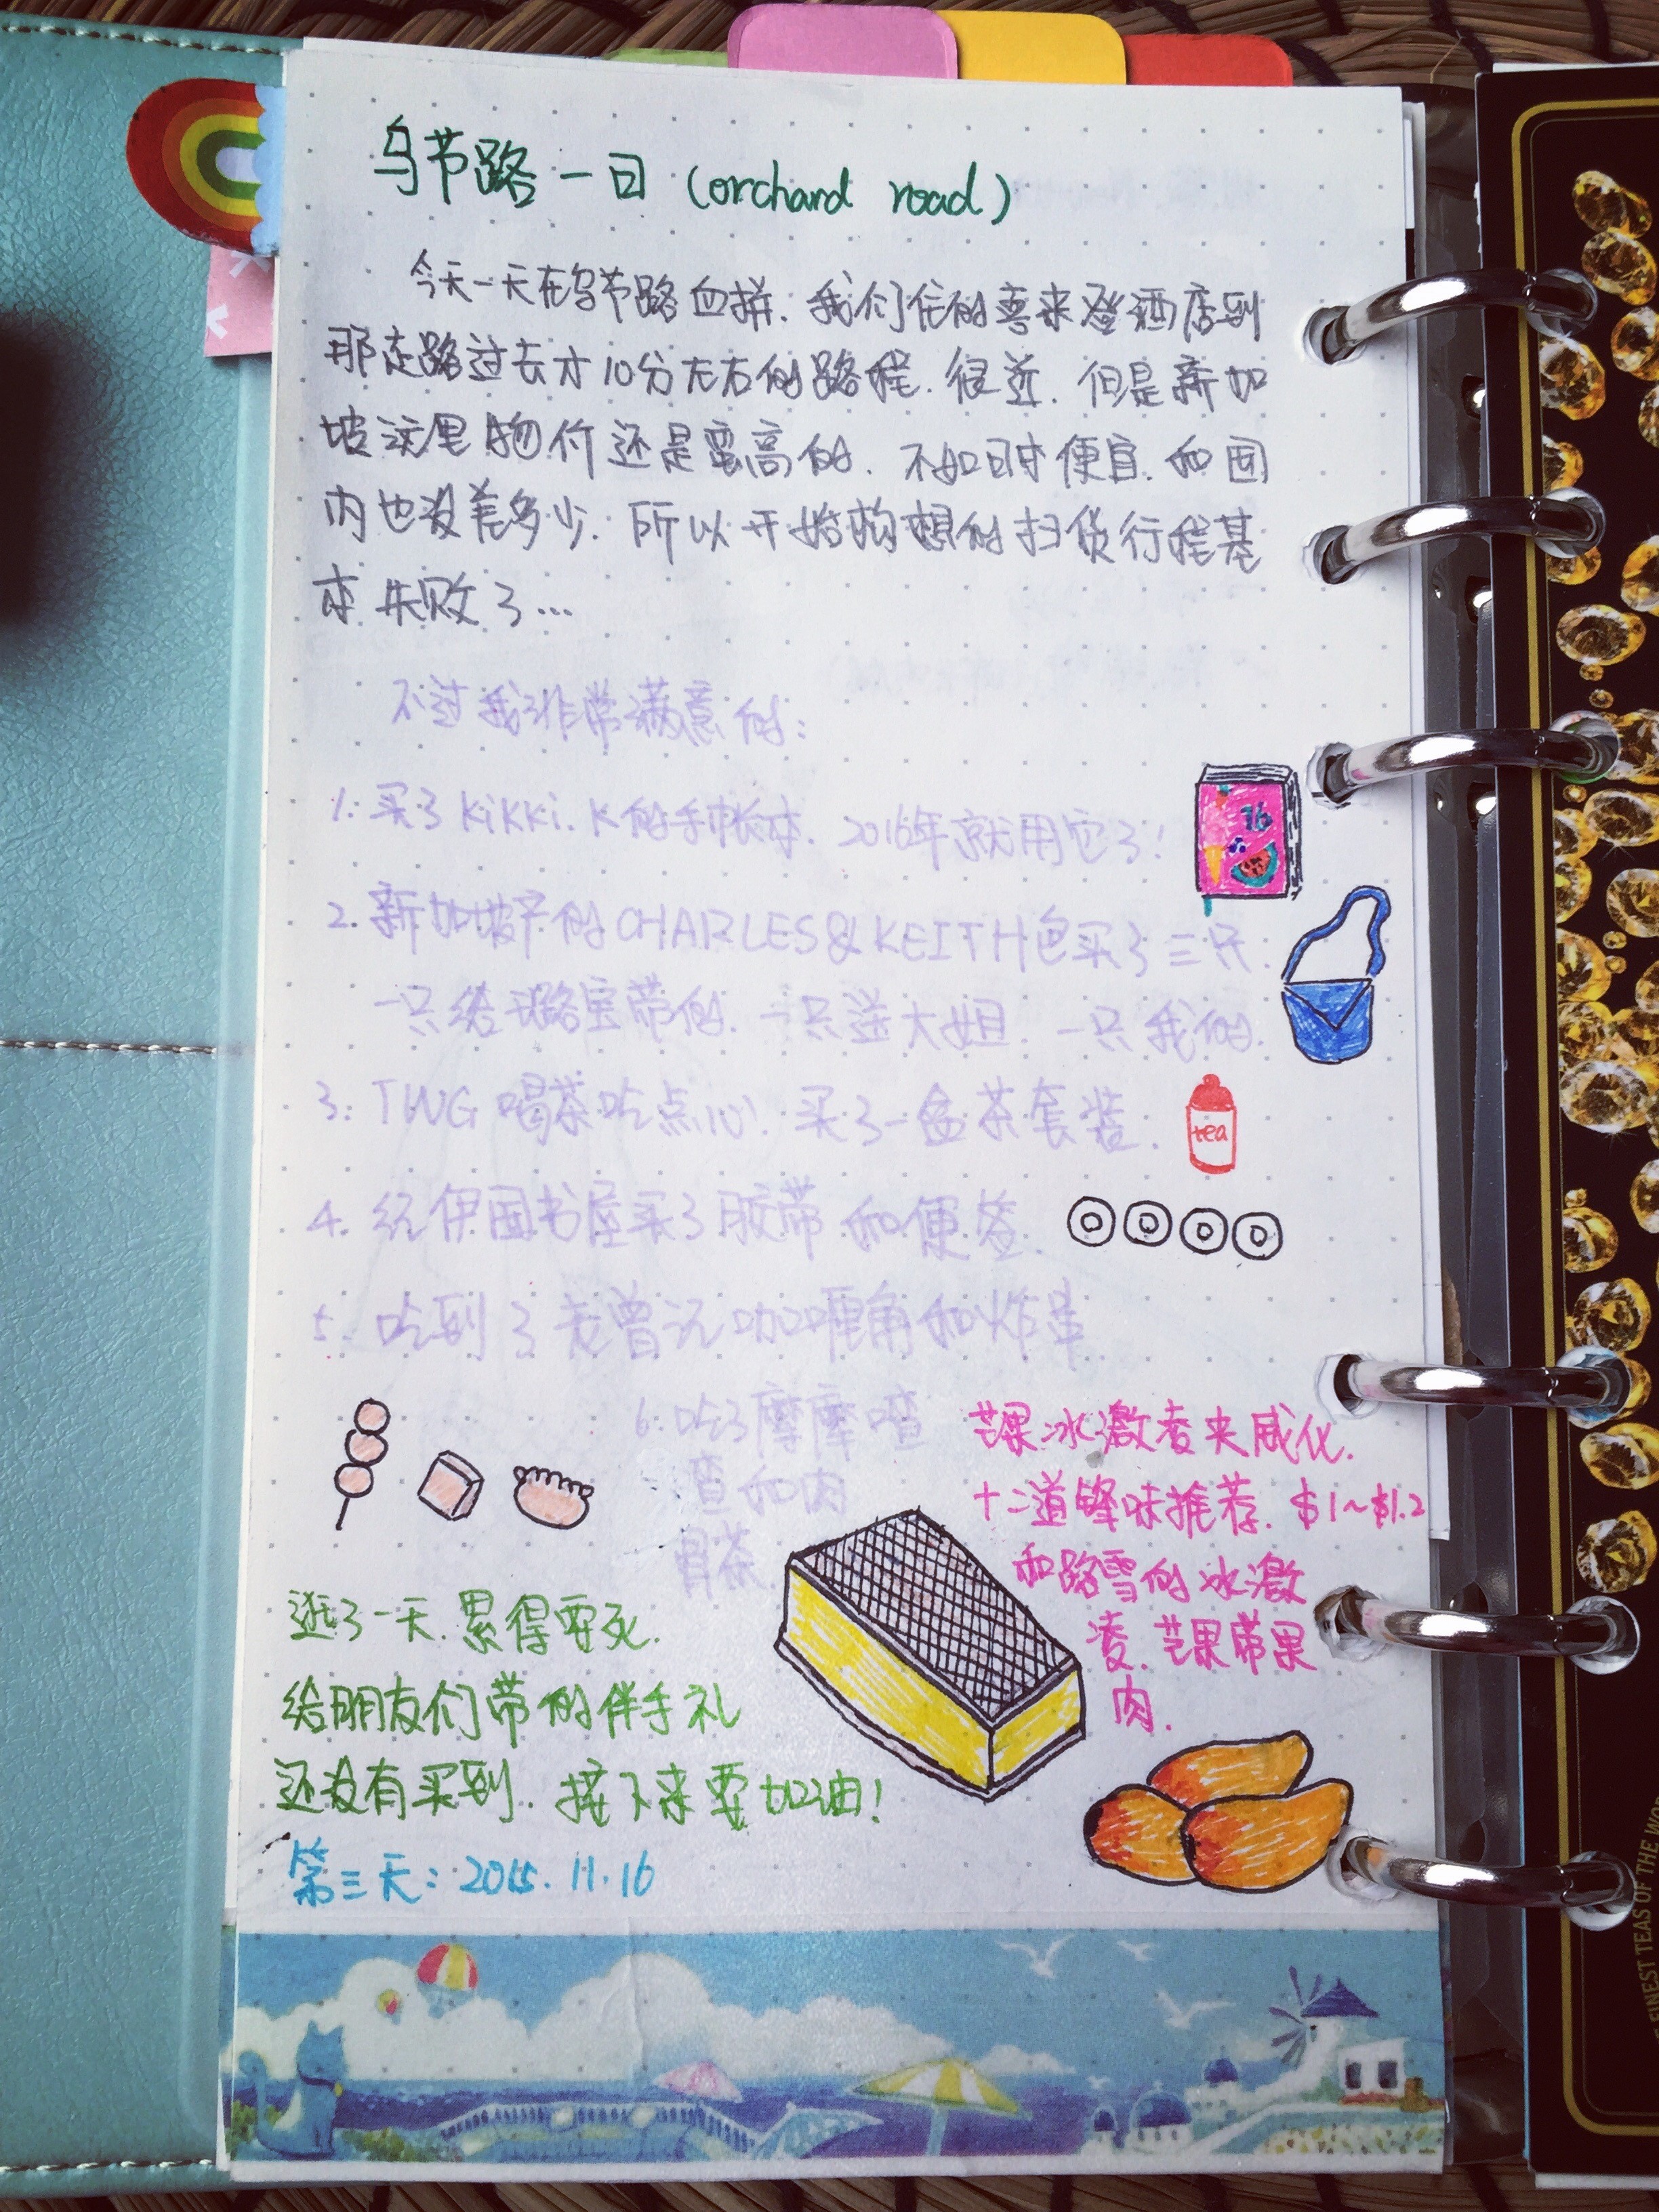 乌节路一日 (orchard road)
今天一天在乌节路血拼. 我们住的喜来登酒店到
那走路过去才10分左右的路程. 很近. 但是新加
坡这里物价还是蛮高的. 不如日本便宜. 和国
内也没差多少. 所以开始构想的扫货行程基
本失败了...
不过我非常满意的:
1. 买了 kikki.k的手帐本. 2016年就用它了!
2. 新加坡产的CHARLES&KEITH包买了三只.
一只给璐宝带的. 一只送大姐. 一只我的.
3. TWG 喝茶吃点心. 买了一盒茶套装.
4. 纪伊国书屋买了胶带和便签.
5. 吃到了老曾记咖喱角和炸蛋
6. 吃了摩摩喳
喳和肉
骨茶.
芒果冰激凌夹威化.
十二道锋味推荐. $1~$1.2
和路雪的冰激
凌. 芒果带果
肉.
逛了一天. 累得要死.
给朋友们带的伴手礼
还没有买到. 接下来要加油!
第三天: 2015.11.16
16
tea
FINEST TEAS OF THE WOR